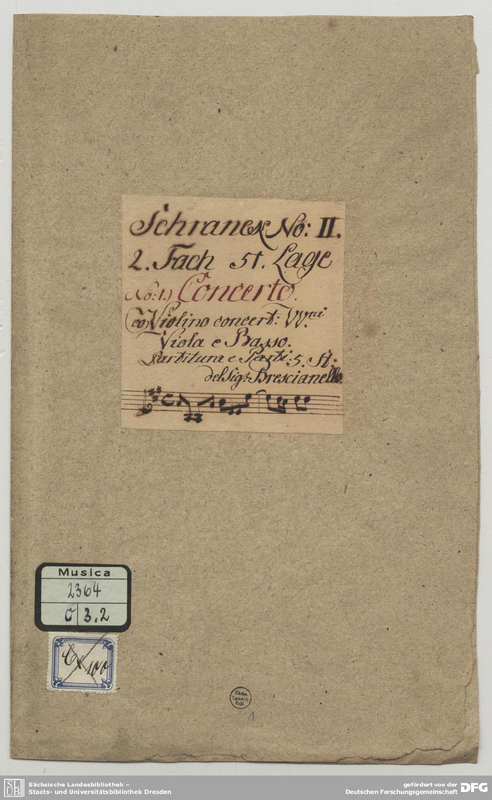 Schranck No: II.
2. Fach 51. Lage
No: 1.) Concerto.
(co) Violino concert: VV.ni
Viola e Basso.
Partitura e Parti: 5. St:
del Sig.r Brescianello.
Musica
2364
O 3,2
Cx 100
Sächs.
Landes-
Bibl.
1
SLUB
Sächsische Landesbibliothek –
Staats- und Universitätsbibliothek Dresden
gefördert von der
Deutschen Forschungsgemeinschaft
DFG